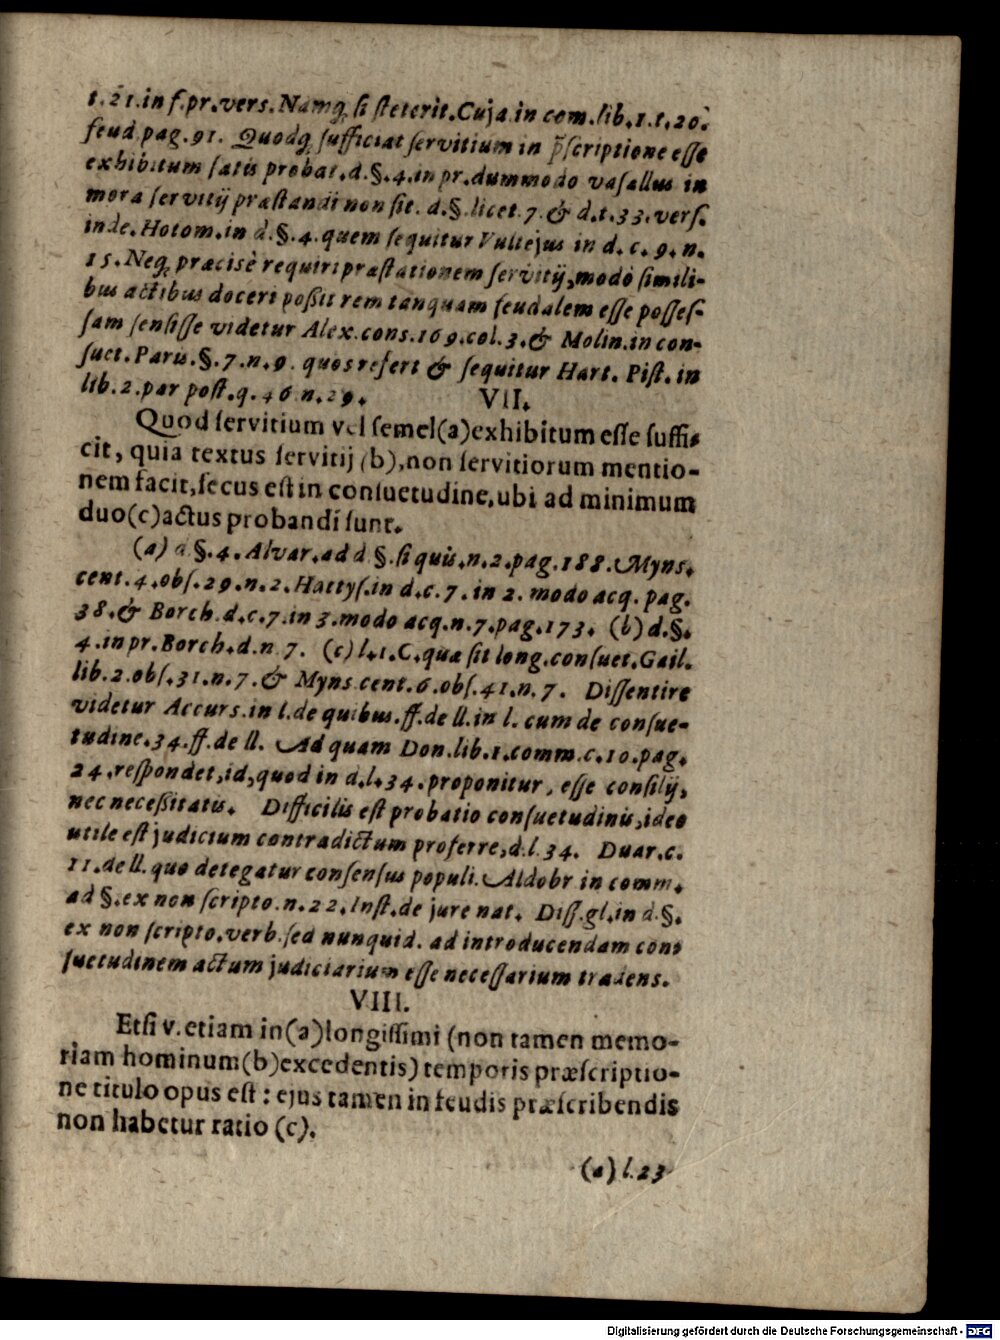 t.21.in f.pr.vers.Namq́; si steterit.Cuja.in com.lib.1.t.20.
feud.pag.91. Quodq́; sufficiat servitium in p̄scriptione esse
exhibitum satis probat.d.§.4.in pr.dummodo vasallus in
mora servitij præstandi non sit. d.§.licet.7.& d.t.33.vers.
inde.Hotom.in d.§.4.quem sequitur Vultejus in d.c.9.n.
15.Neq́; præcisè requiri præstationem servitij,modò simili-
bus actibus doceri possit rem tanquam feudalem esse posses-
sam sensisse videtur Alex.cons.169.col.3.& Molin.in con-
suet.Paris.§.7.n.9. quos refert & sequitur Hart. Pist. in
lib.2.par post.q.46 n.29. VII.
Quod servitium vel semel(a)exhibitum esse suffi-
cit, quia textus servitij (b),non servitiorum mentio-
nem facit,secus est in consuetudine,ubi ad minimum
duo(c)actus probandi sunt.
(a) d.§.4.Alvar.ad d.§.si quis.n.2.pag.188.Myns.
cent.4.obs.29.n.2.Hattys.in d.c.7.in 2.modo acq.pag.
38.& Borch.d.c.7.in 3.modo acq.n.7.pag.173. (b)d.§.
4.in pr.Borch.d.n.7. (c)l.1.C.quæ sit long.consuet.Gail.
lib.2.obs.31.n.7.& Myns.cent.6.obs.41.n.7. Dissentire
videtur Accurs.in l.de quibus.ff.de ll.in l. cum de consue-
tudine.34.ff.de ll. Ad quam Don.lib.1.comm.c.10.pag.
24.respondet,id,quod in d.l.34.proponitur, esse consilij,
nec necessitatis. Difficilis est probatio consuetudinis,ideo
utile est judicium contradictum proferre,d.l.34. Duar.c.
11.de ll. quo detegatur consensus populi.Aldobr.in comm.
ad §.ex non scripto.n.22.Inst.de jure nat. Diss.gl.in d.§.
ex non scripto.verb.sed nunquid. ad introducendam con-
suetudinem actum judiciarium esse necessarium tradens.
VIII.
Etsi v.etiam in(a)longissimi (non tamen memo-
riam hominum(b)excedentis) temporis præscriptio-
ne titulo opus est : ejus tamen in feudis præscribendis
non habetur ratio (c).
(a) l.23
Digitalisierung gefördert durch die Deutsche Forschungsgemeinschaft - DFG